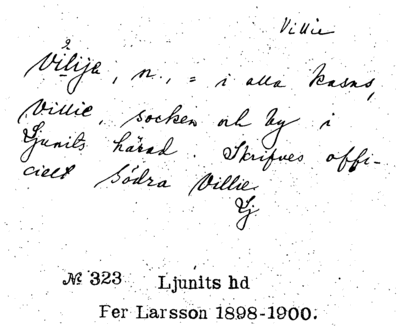 Villie
Vilija, n., = i alla kasus,
Villie, socken och by i
Ljunits härad. Skrifves offi-
cielt Södra Villie.
Lj
№ 323 Ljunits hd
Fer Larsson 1898-1900.